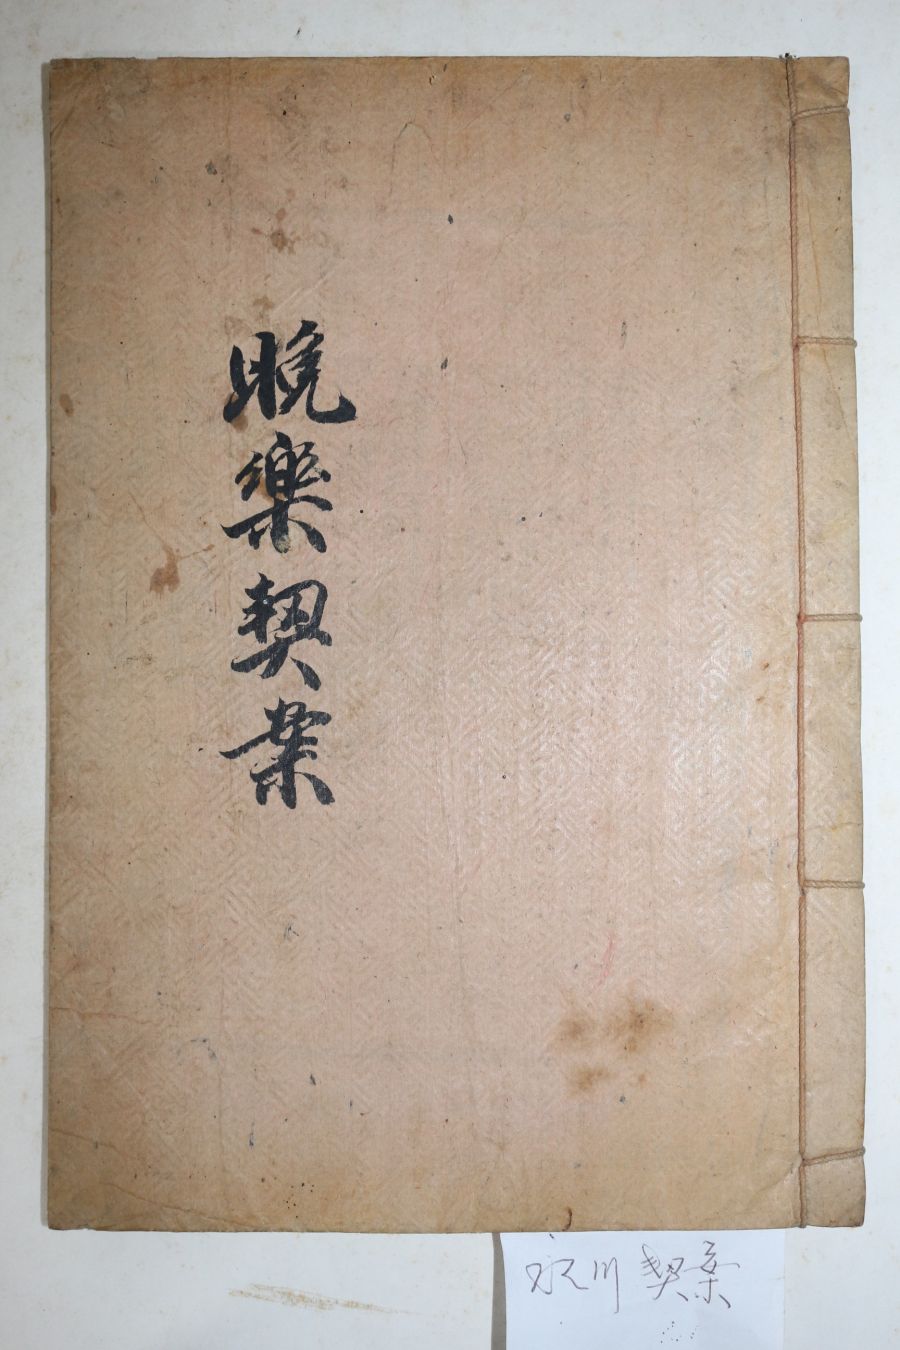 晩樂契案
永川 契案